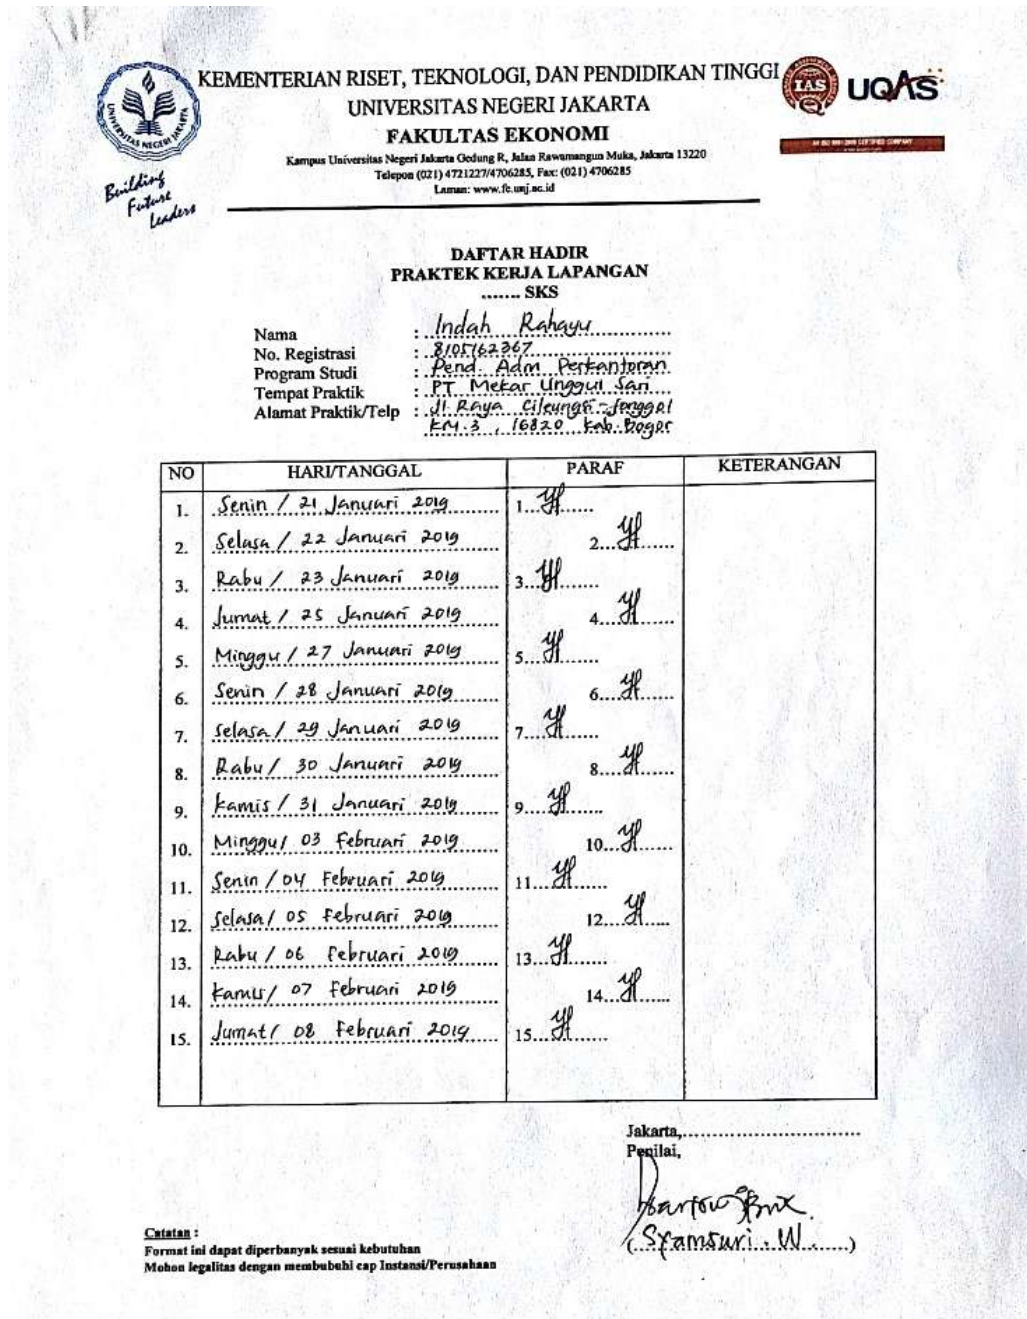 KEMENTERIAN RISET, TEKNOLOGI, DAN PENDIDIKAN TINGGI
UNIVERSITAS NEGERI JAKARTA
FAKULTAS EKONOMI
Kampus Universitas Negeri Jakarta Gedung R, Jalan Rawamangun Muka, Jakarta 13220
Telepon (021) 4721227/4706285, Fax: (021) 4706285
Laman: www.fe.unj.ac.id
UNIVERSITAS NEGERI JAKARTA
Building
Future
Leaders
IAS
UQAS
AN ISO 9001:2008 CERTIFIED COMPANY
DAFTAR HADIR
PRAKTEK KERJA LAPANGAN
....... SKS
Nama : Indah Rahayu
No. Registrasi : 8105162367
Program Studi : Pend. Adm Perkantoran
Tempat Praktik : PT Mekar Unggul Sari
Alamat Praktik/Telp : Jl. Raya Cileungsi - Jonggol
KM.3 , 16820 Kab. Bogor
NO HARI/TANGGAL PARAF KETERANGAN
1. Senin / 21 Januari 2019 1.
2. Selasa / 22 Januari 2019 2.
3. Rabu / 23 Januari 2019 3.
4. Jumat / 25 Januari 2019 4.
5. Minggu / 27 Januari 2019 5.
6. Senin / 28 Januari 2019 6.
7. Selasa / 29 Januari 2019 7.
8. Rabu / 30 Januari 2019 8.
9. Kamis / 31 Januari 2019 9.
10. Minggu / 03 Februari 2019 10.
11. Senin / 04 Februari 2019 11.
12. Selasa / 05 Februari 2019 12.
13. Rabu / 06 Februari 2019 13.
14. Kamis / 07 Februari 2019 14.
15. Jumat / 08 Februari 2019 15.
Jakarta,..............................
Penilai,
(Syamsuri . W.....)
Catatan :
Format ini dapat diperbanyak sesuai kebutuhan
Mohon legalitas dengan membubuhi cap Instansi/Perusahaan